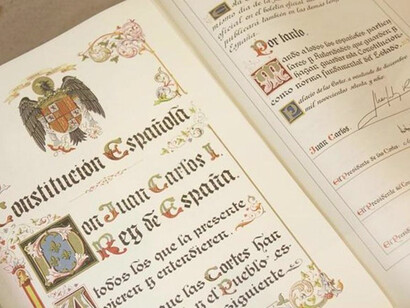 Constitución Española
Don Juan Carlos I,
Rey de España.
A todos los que la presente
vieren y entendieren,
que las Cortes han
y el Pueblo es-
siguiente
Da
mismo día de
en el boletín oficial del
publicará también en las demás leng
España.
Por tanto,
Mando a todos los españoles particu
lares y Autoridades que guarden y
hagan guardar esta Constitución
como norma fundamental del Estado.
Palacio de las Cortes, a
de diciembre
mil novecientos setenta y ocho.
Juan Carlos
El Presidente de las Cortes
El Presidente
El Presidente